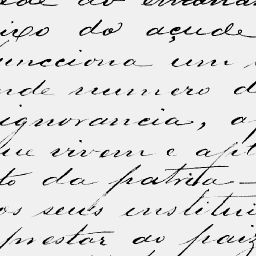 do
ixo do açude
uncciona um
nde numero d
ignorancia, a
ue vivem e apt
to da patria —
os seus institui
prestar ao paiz